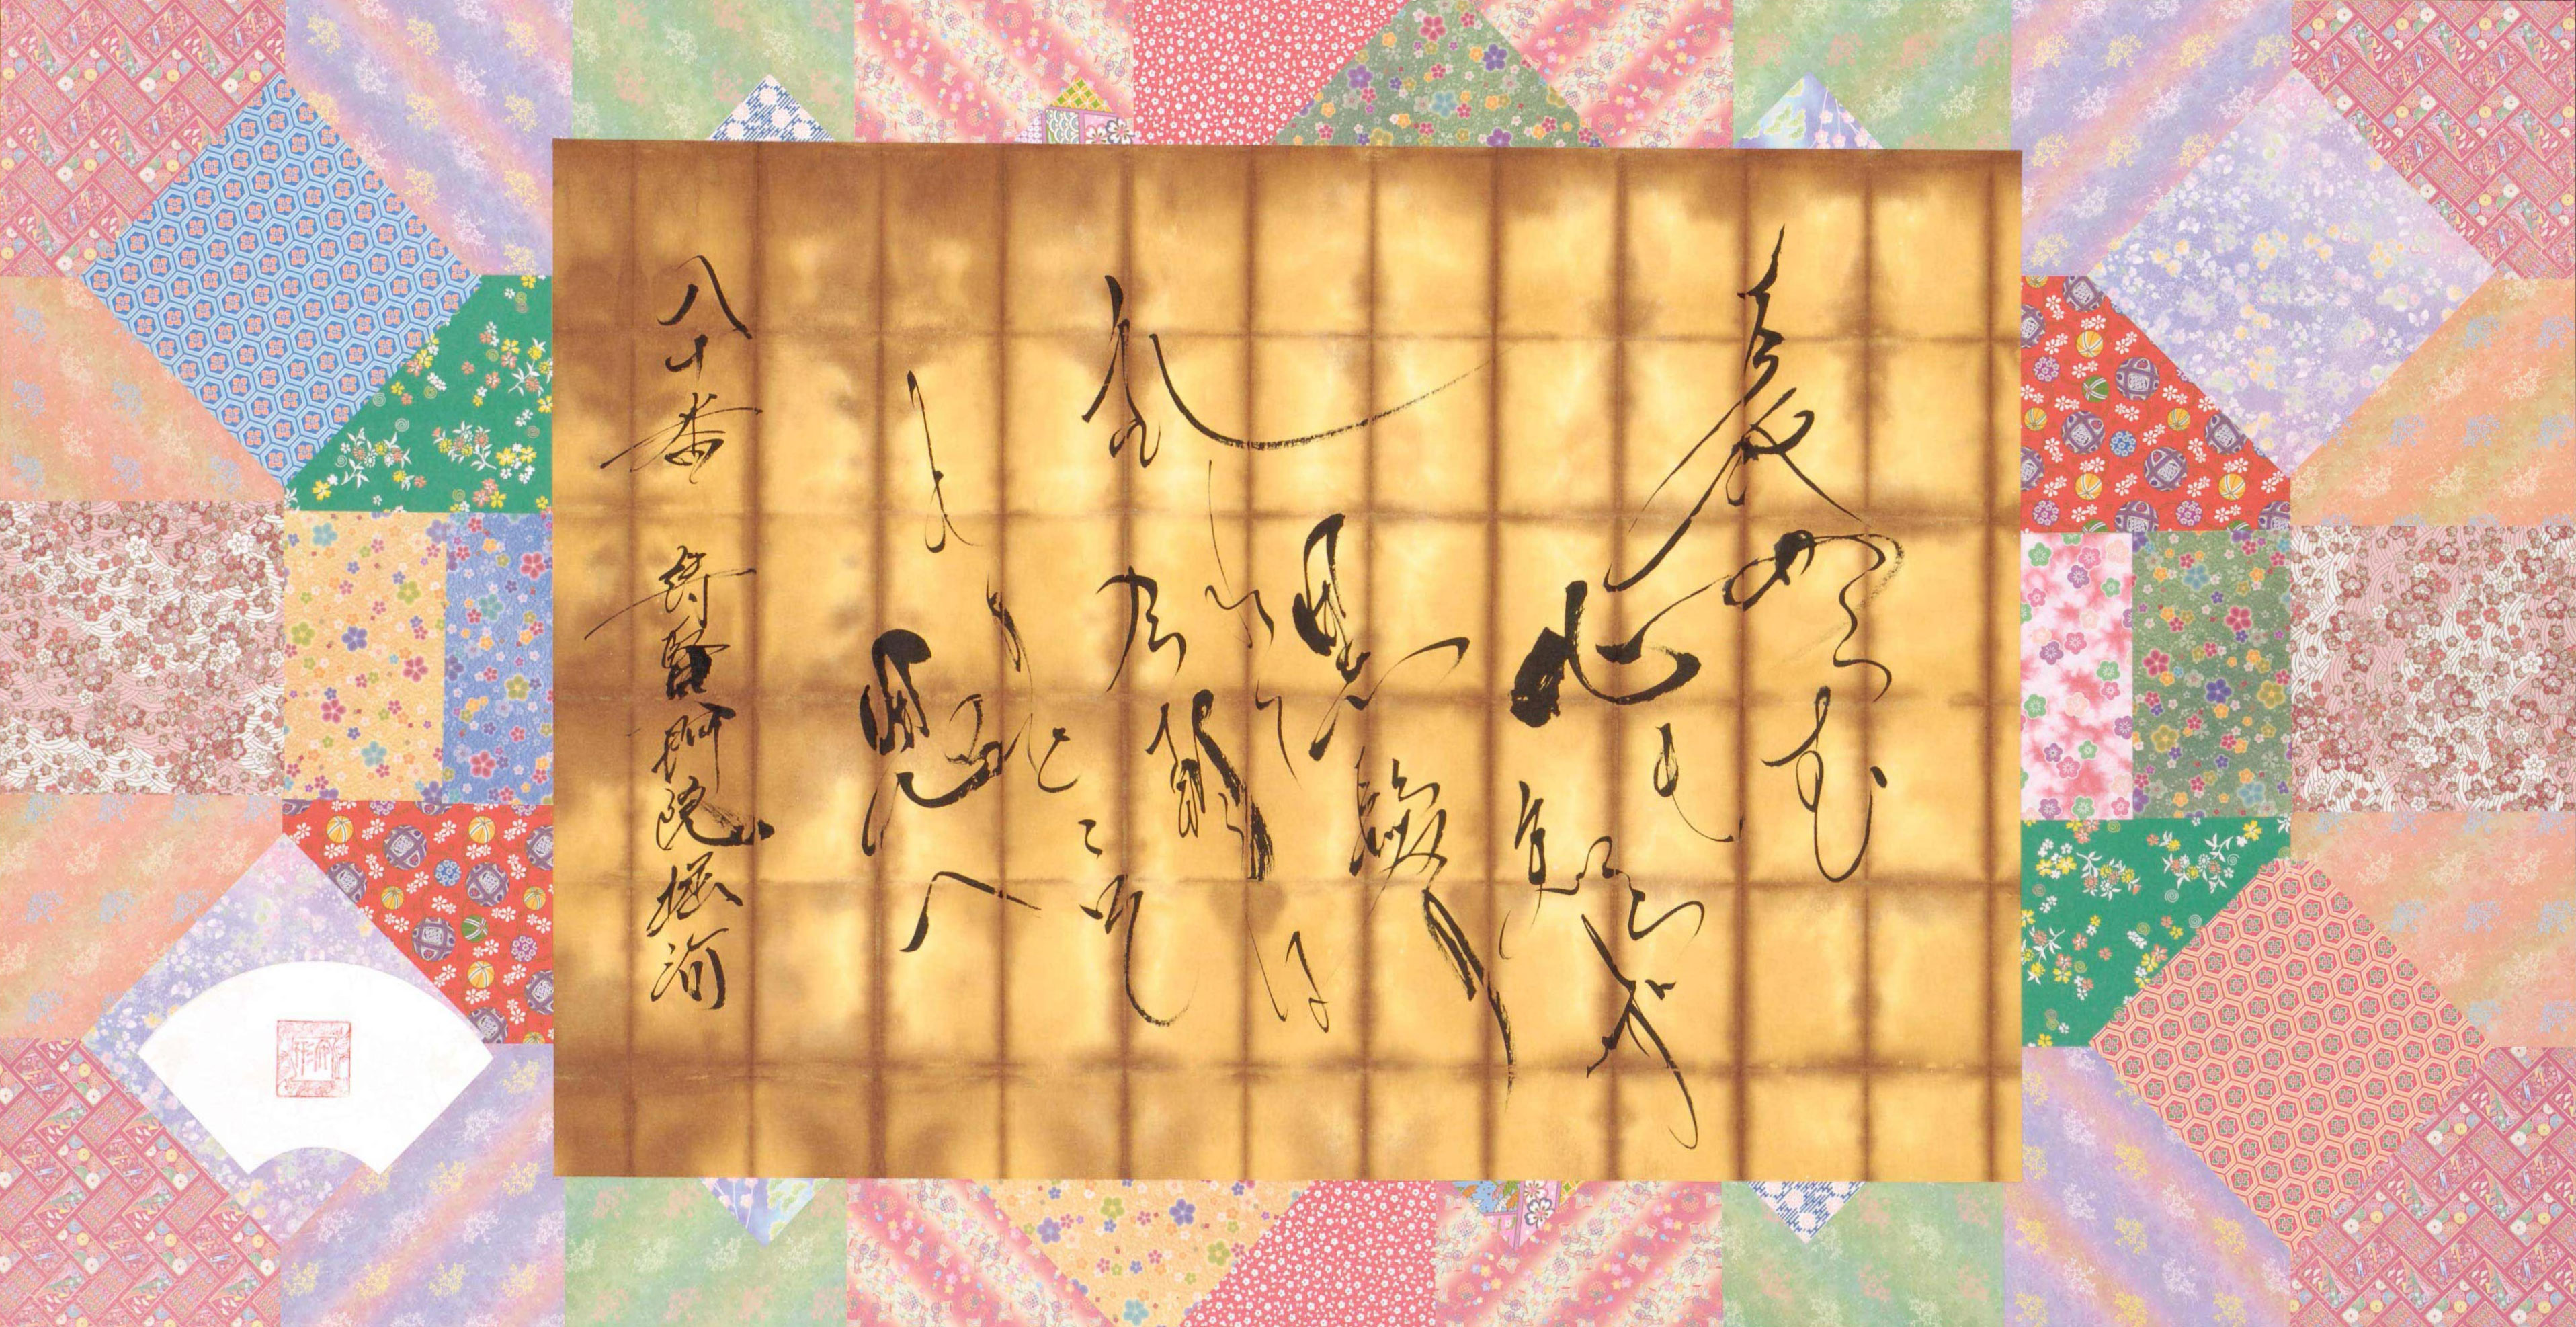 長からむ
心も知らず
黒髪の
乱れて
今朝は
ものをこそ
思へ
八十番 待賢門院堀河